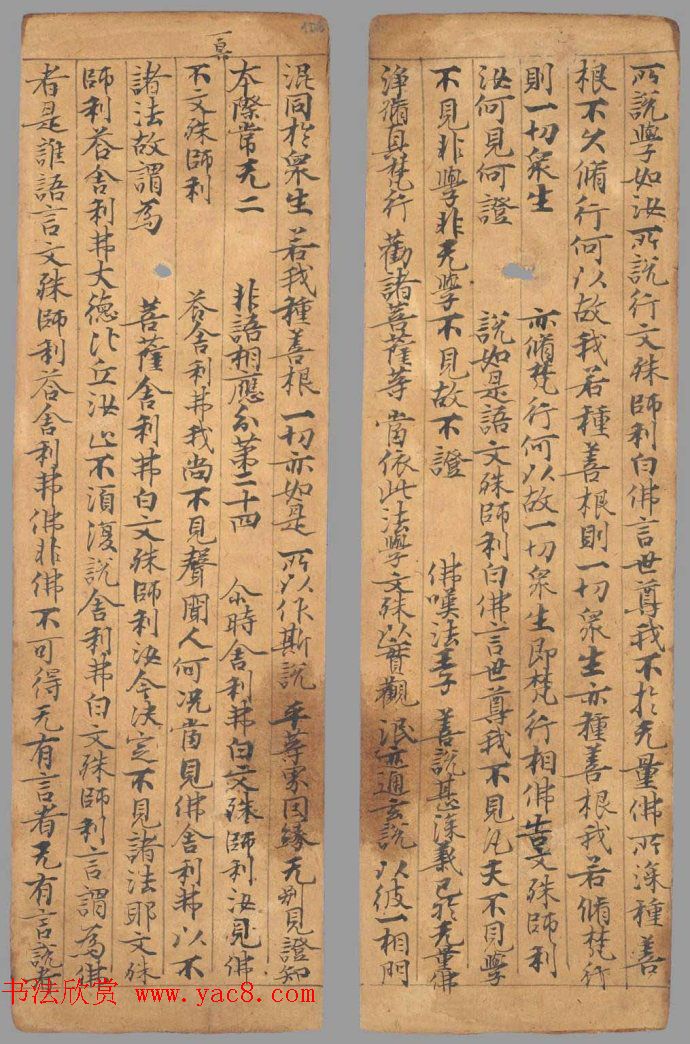 所說學如汝所說行文殊師利白佛言世尊我不於无量佛所深種善
根不久脩行何以故我若種善根則一切衆生亦種善根我若脩梵行
則一切衆生 亦脩梵行何以故一切衆生即梵行相佛告文殊師利
汝何見何證 說如是語文殊師利白佛言世尊我不見凡夫不見學
不見非學非无學不見故不證 佛嘆法王子 善說甚深義已於无量佛
淨脩真梵行 勸諸菩薩等 當依此法學文殊以實觀 泯亦通玄說 以彼一相門
混同於衆生 若我種善根 一切亦如是 所以作斯說 平等家因緣 无別見證知
本際常无二 非語相應分第二十四 尒時舍利弗白文殊師利汝見佛
不文殊師利 荅舍利弗我尚不見聲聞人何況當見佛舍利弗以不
諸法故謂為 菩薩舍利弗白文殊師利汝今決定不見諸法耶文殊
師利荅舍利弗大德比丘汝止不須復說舍利弗白文殊師利言謂為佛
者是誰語言文殊師利荅舍利弗佛非佛不可得无有言者无有言說者
书法欣赏 www.yac8.com